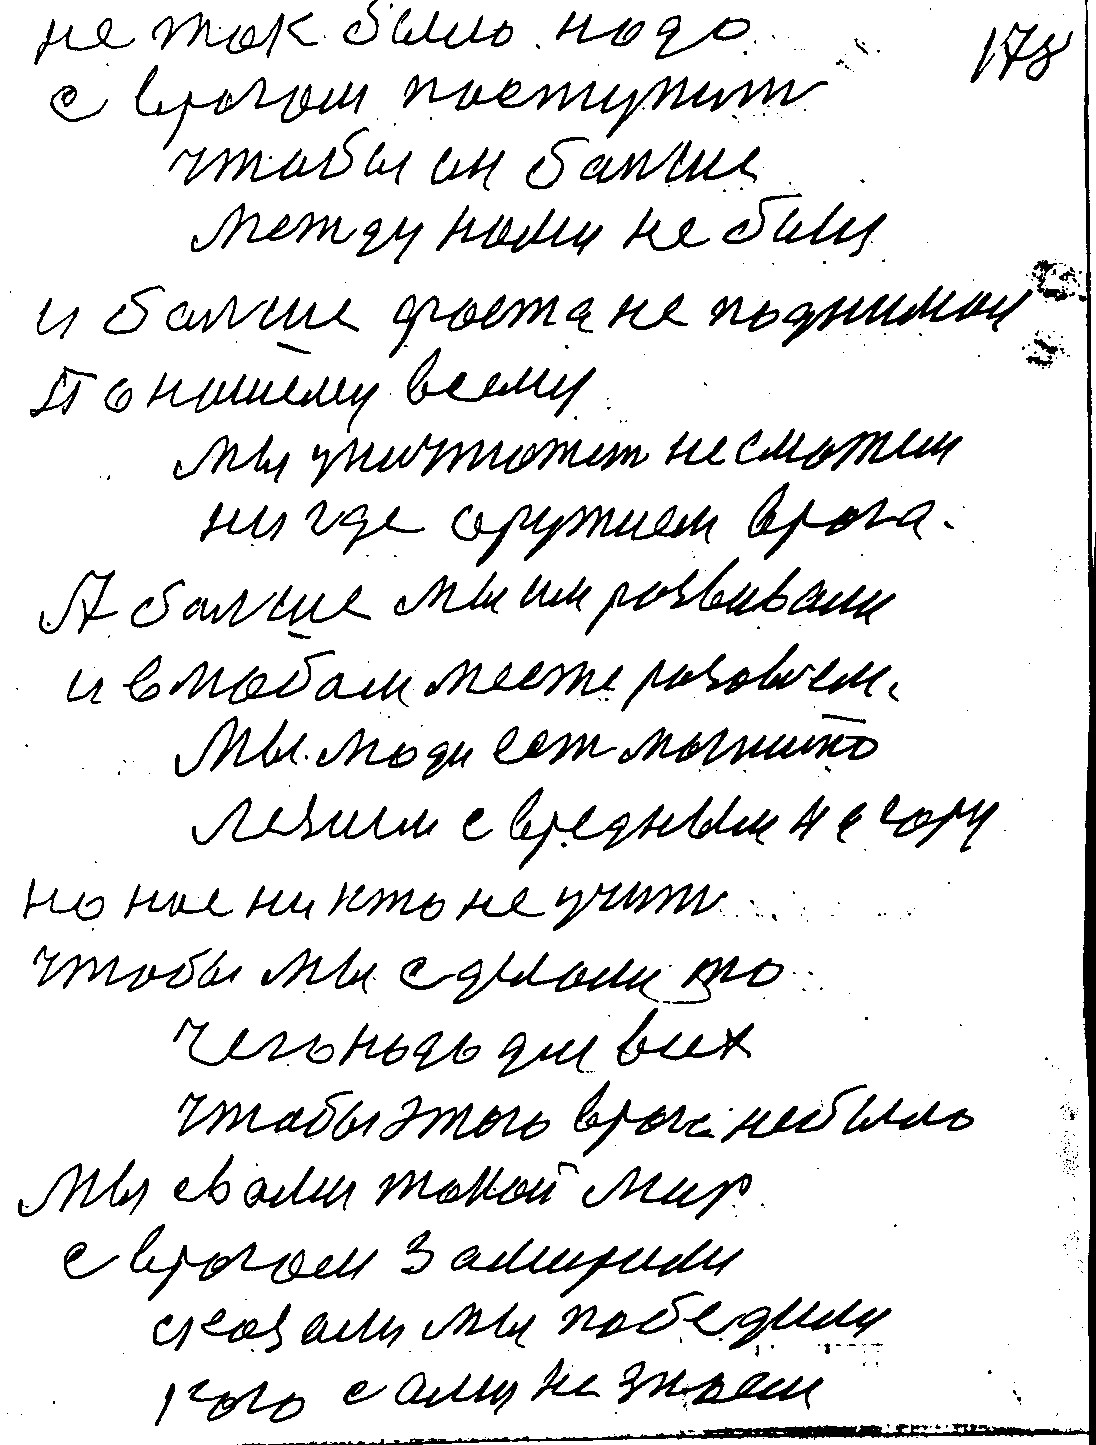 не так было надо
178
с врогом поступит
чтобы он балше
между нами не был
и балше фоста не поднимал
По нашему всему
мы уничтожит не сможем
ни где оружием врога.
А балше мы им розвивали
и в любом месте розовьем.
Мы люди ест
Лезим с вредным на гору
но нас ни кто не учит
чтобы мы сделали то
чего надо для всех
чтобы этого врога небыло
Мы свами такой мир
с врогом Замирили
сказали мы победили
кого сами не знаем